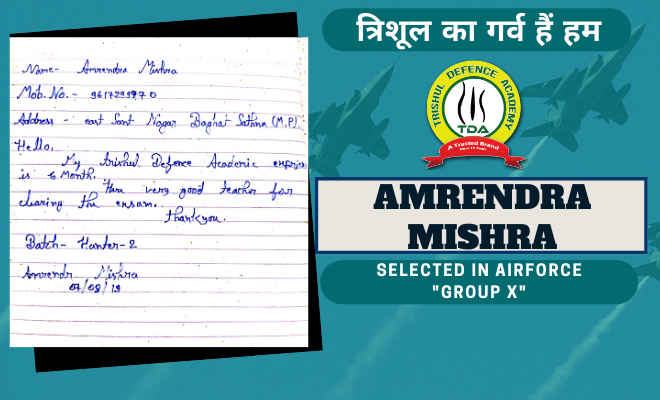 Name:- Amrendra Mishra
Mob. No. -
Address - east Sant Nagar Baghat Sathna (M.P).
Hello,
My Trishul Defence Academic
is 6 Month. very good teacher for
clearing the exsam.
Thankyou.
Batch- Hunter-2
Amrendr Mishra
07/08/19
त्रिशूल का गर्व हैं हम
TRISHUL DEFENCE ACADEMY
TDA
A Trusted Brand
AMRENDRA
MISHRA
SELECTED IN AIRFORCE
"GROUP X"